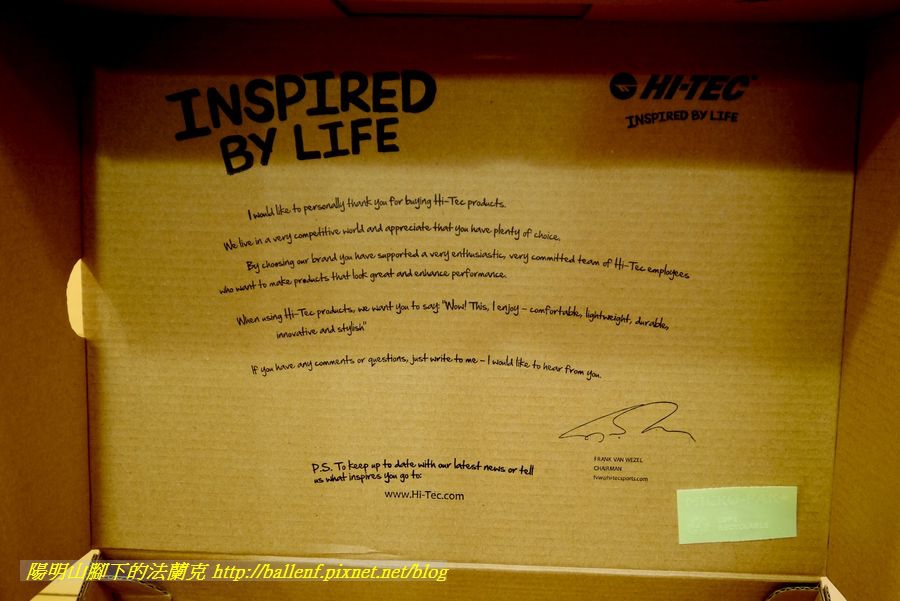 INSPIRED
BY LIFE
HI-TEC
INSPIRED BY LIFE
I would like to personally thank you for buying Hi-Tec products.
We live in a very competitive world and appreciate that you have plenty of choice.
By choosing our brand you have supported a very enthusiastic, very committed team of Hi-Tec employees
who want to make products that look great and enhance performance.
When using Hi-Tec products, we want you to say: "Wow! This, I enjoy – comfortable, lightweight, durable,
innovative and stylish"
If you have any comments or questions, just write to me – I would like to hear from you.
FRANK VAN WEZEL
CHAIRMAN
fvw@hi-tecsports.com
P.S. To keep up to date with our latest news or tell
us what inspires you go to:
www.Hi-Tec.com
陽明山腳下的法蘭克 http://ballenf.pixnet.net/blog